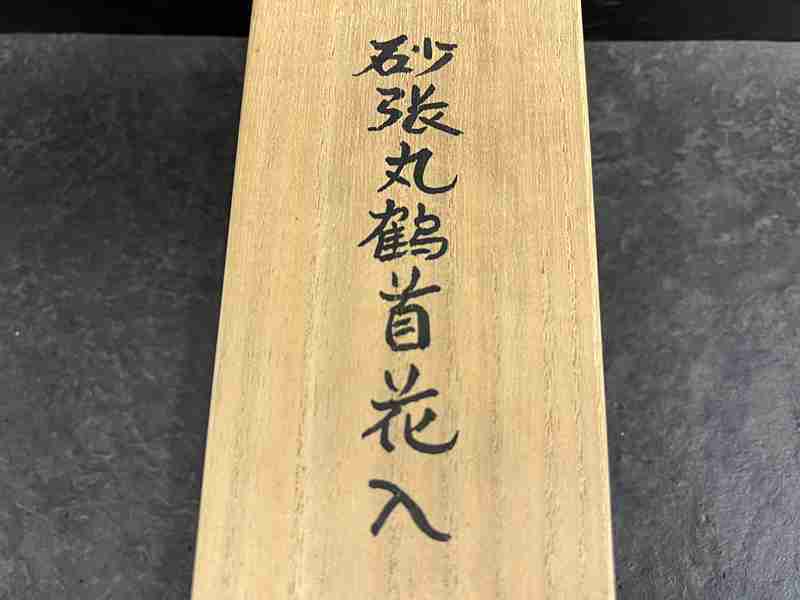 砂張丸鶴首花入